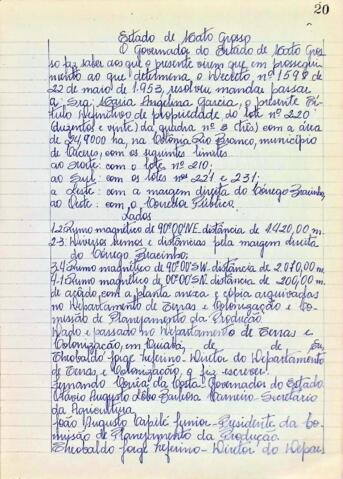 20
Estado de Mato Grosso
O Governador do Estado de Mato Gros
so faz saber aos que o presente virem que em prossegui
mento ao que determina o Decreto nº 1598 de
22 de maio de 1.953, resolveu mandar passar
a Sra: Maria Angelina Garcia, o presente Tí
tulo Definitivo de propriedade do lote nº 220
(duzentos e vinte) da quadra nº 3 (três) com a área
de ha, na Colônia Rio Branco, município
de Cáceres, com os seguintes limites.
ao Norte: com o lote nº 210;
ao Sul: com os lotes nºs 221 e 231;
a Leste: com a margem direita do Córrego
ao Oeste: com o Corredor Público.
Lados
1.2. Rumo magnético de 90º00'NE. distância de 1420,00 m.
2-3. Diversos rumos e distâncias pela margem direita
do Córrego
3.4. Rumo magnético de 90º00'SW. distância de 2.070,00 m.
4-1. Rumo magnético de 00º00' distância de 200,00 m.
de acôrdo, com a planta anexa e cópia arquivadas
no Departamento de Terras e Colonização e Co-
missão de Planejamento da Produção.
Dado e passado no Departamento de Terras e
Colonização, em Cuiabá, de de Eu,
Theobaldo Jorge - Diretor do Departamento
de Terras, e Colonização, o fiz escrever.
Fernando Corrêa da Costa - Governador do Estado.
Otávio Augusto Lôbo Barbosa Carneiro - Secretário
da Agricultura.
João Augusto Capilé Junior - Presidente da Co-
missão de Planejamento da Produção.
Theobaldo Jorge - Diretor do Depar